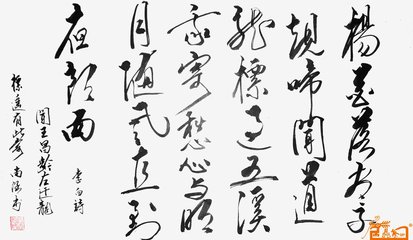 楊花落尽子
規啼聞道
龍標過五溪
我寄愁心与明
月随風直到
夜郎西
李白詩
聞王昌齡左迁龍
標遥有此寄